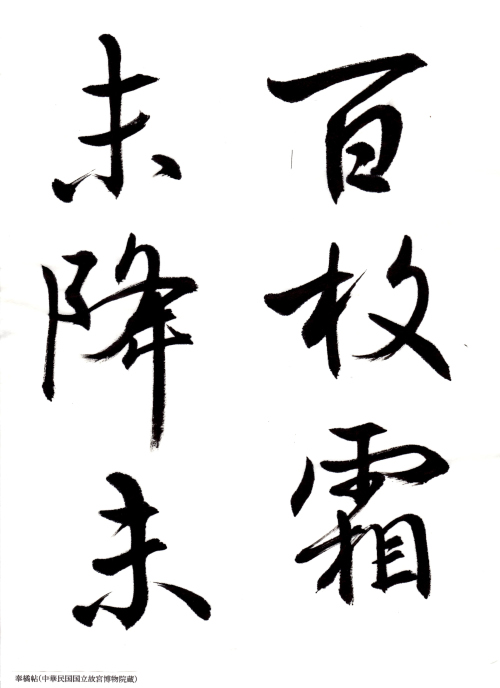 百枚霜
未降未
奉橘帖(中華民国国立故宮博物院蔵)